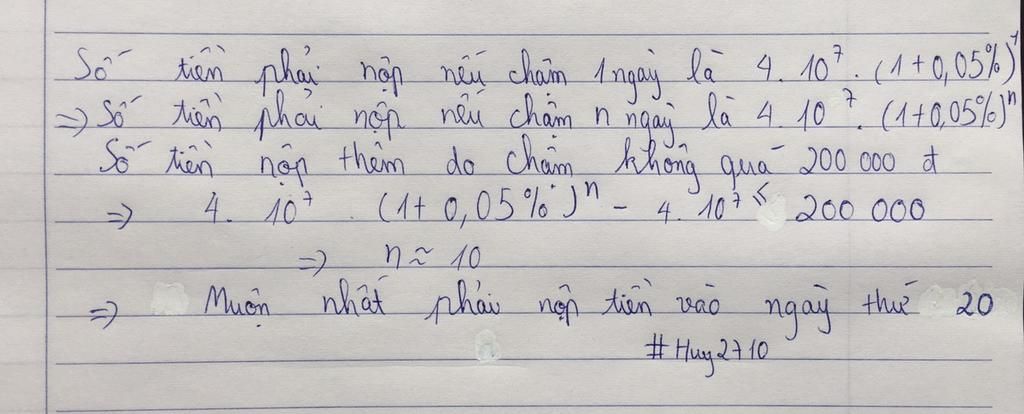 Số tiền phải nộp nếu chậm 1 ngày là 4. 10⁷. (1+0,05%)¹
=> Số tiền phải nộp nếu chậm n ngày là 4. 10⁷. (1+0,05%)ⁿ
Số tiền nộp thêm do chậm không quá 200 000 đ
=> 4. 10⁷. (1+ 0,05%)ⁿ - 4. 10⁷ ≤ 200 000
=> n ≈ 10
=> Muộn nhất phải nộp tiền vào ngày thứ 20
#Huy2710